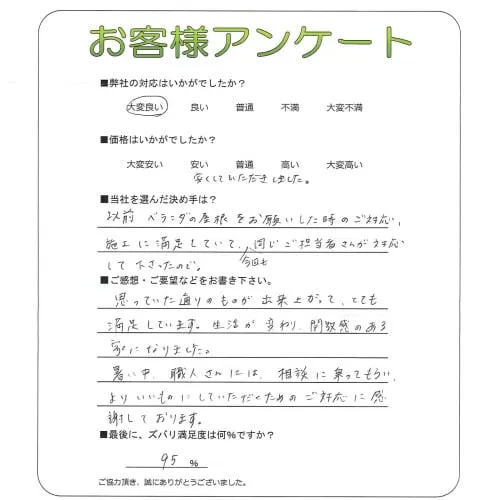 お客様アンケート
■弊社の対応はいかがでしたか?
大変良い 良い 普通 不満 大変不満
■価格はいかがでしたか?
大変安い 安い 普通 高い 大変高い
安くしていただきました。
■当社を選んだ決め手は?
以前 ベランダの屋根をお願いした時のご対応、
施工に満足していて、今回も同じご担当者さんが対応
して下さったので。
■ご感想・ご要望などをお書き下さい。
思っていた通りのものが出来上がって、とても
満足しています。生活が変わり、開放感のある
家になりました。
暑い中、職人さんには、相談に乗ってもらい、
よりいいものにしていただくためのご対応に感
謝しております。
■最後に、ズバリ満足度は何%ですか?
95 %
ご協力頂き、誠にありがとうございました。